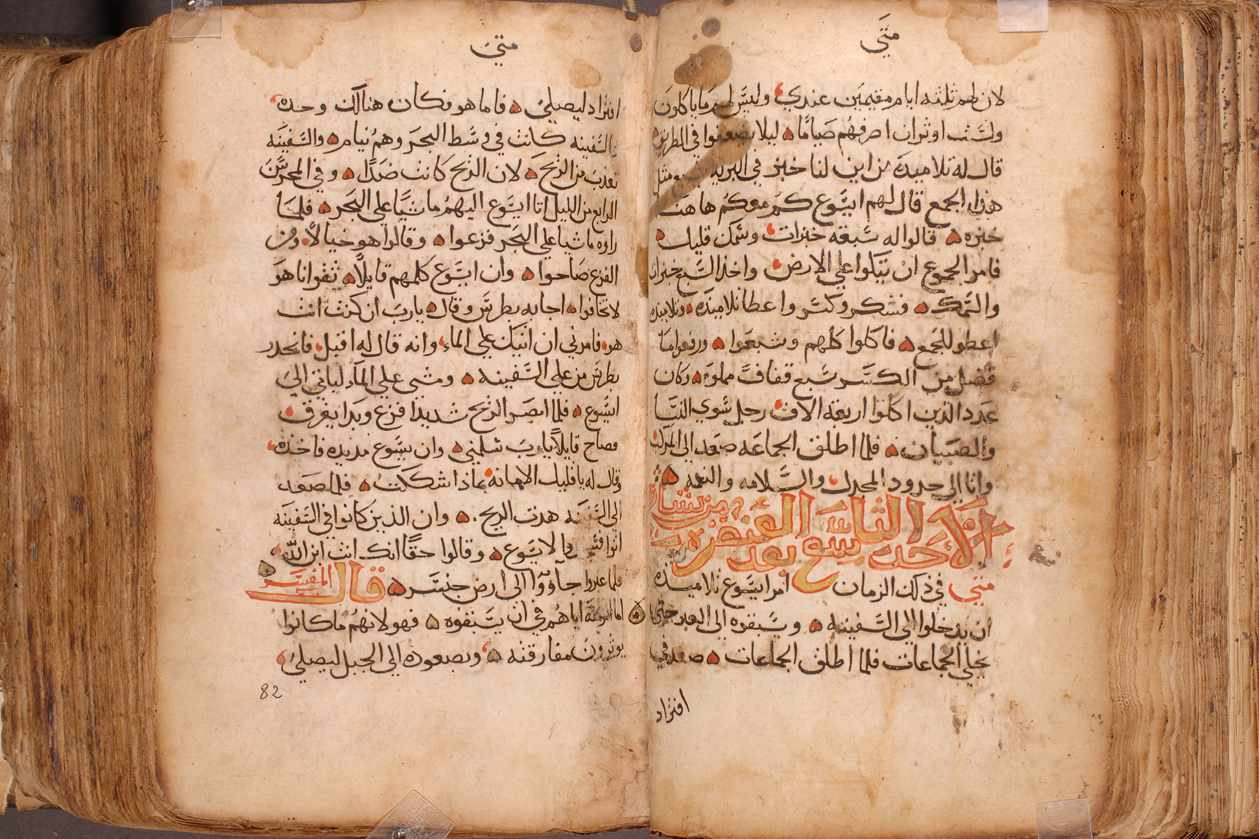 متى
لان لهم ثلثه ايام مقيمين عندي وليس لهم ما ياكلون
ولست اوثر ان اصرفهم صيامًا ليلا يضعفوا في الطريق
قال له تلاميذه من اين لنا خبز في البريه
هذا الجمع قال لهم ايسوع كم معكم هاهنا
خبزه قالوا له سبعه خبزات وسمك قليل
فامر الجموع ان يتكوا على الارض واخذ السبع خبزات
والسمك فشكر وكسر واعطا تلاميذه وتلاميذه
اعطو للجمع فاكلوا كلهم وشبعوا ورفعوا ما
فضل من الكسر سبع قفاف مملوه وكان
عدد الذين اكلوا اربعة الاف رجل سوى النسا
والصبيان فلما اطلق الجماعه صعد الى المركب
واتا الى حدود المجدل والسلامه
الاحد التاسع بعد العنصره من بشاره
متى في ذلك الزمان امر ايسوع تلاميذه
ان يدخلوا الى السفينه ويسبقوه الى العبر حتى
يخلي الجماعات فلما اطلق الجماعات صعد في
افتراد
متى
افتراد ليصلي فاما هو فكان هنالك وحده
والسفينه كانت في وسط البحر وهم نيام والسفينه
تعذب من الريح لان الريح كانت ضدًا وفي المحرس
الرابع من الليل اتا ايسوع اليهم ماشيًا على البحر فلما
راوه ماشيا على البحر فزعوا وقالوا هو خيالا ومن
الفزع صاحوا وان ايسوع كلمهم قايلًا ثقوا انا هو
لا تخافوا اجابه بطرس وقال يارب ان كنت انت
هو فامرني ان اتيك على الماء وانه قال له اقبل فانحدر
بطرس من على السفينه ومشى على الماء لياتي الى
ايسوع فلما ابصر الريح شديدا فزع وبدا يغرق
فصاح قايلًا يارب سلمني وان يسوع مد يده فاخذه
وقال له يا قليل الامانه لماذا شككت فلما صعد
الى السفينه هدت الريح وان الذين كانوا في السفينه
اتوا لايسوع وقالوا حقًا انك انت ابن الله
فلما عبروا جاووا الى ارض جنسر قال المفسر
اياهم في ان يسبقوه فهو لانهم ما كانوا
يوثرون مفارقته وبصعوده الى الجبل ليصلي
82